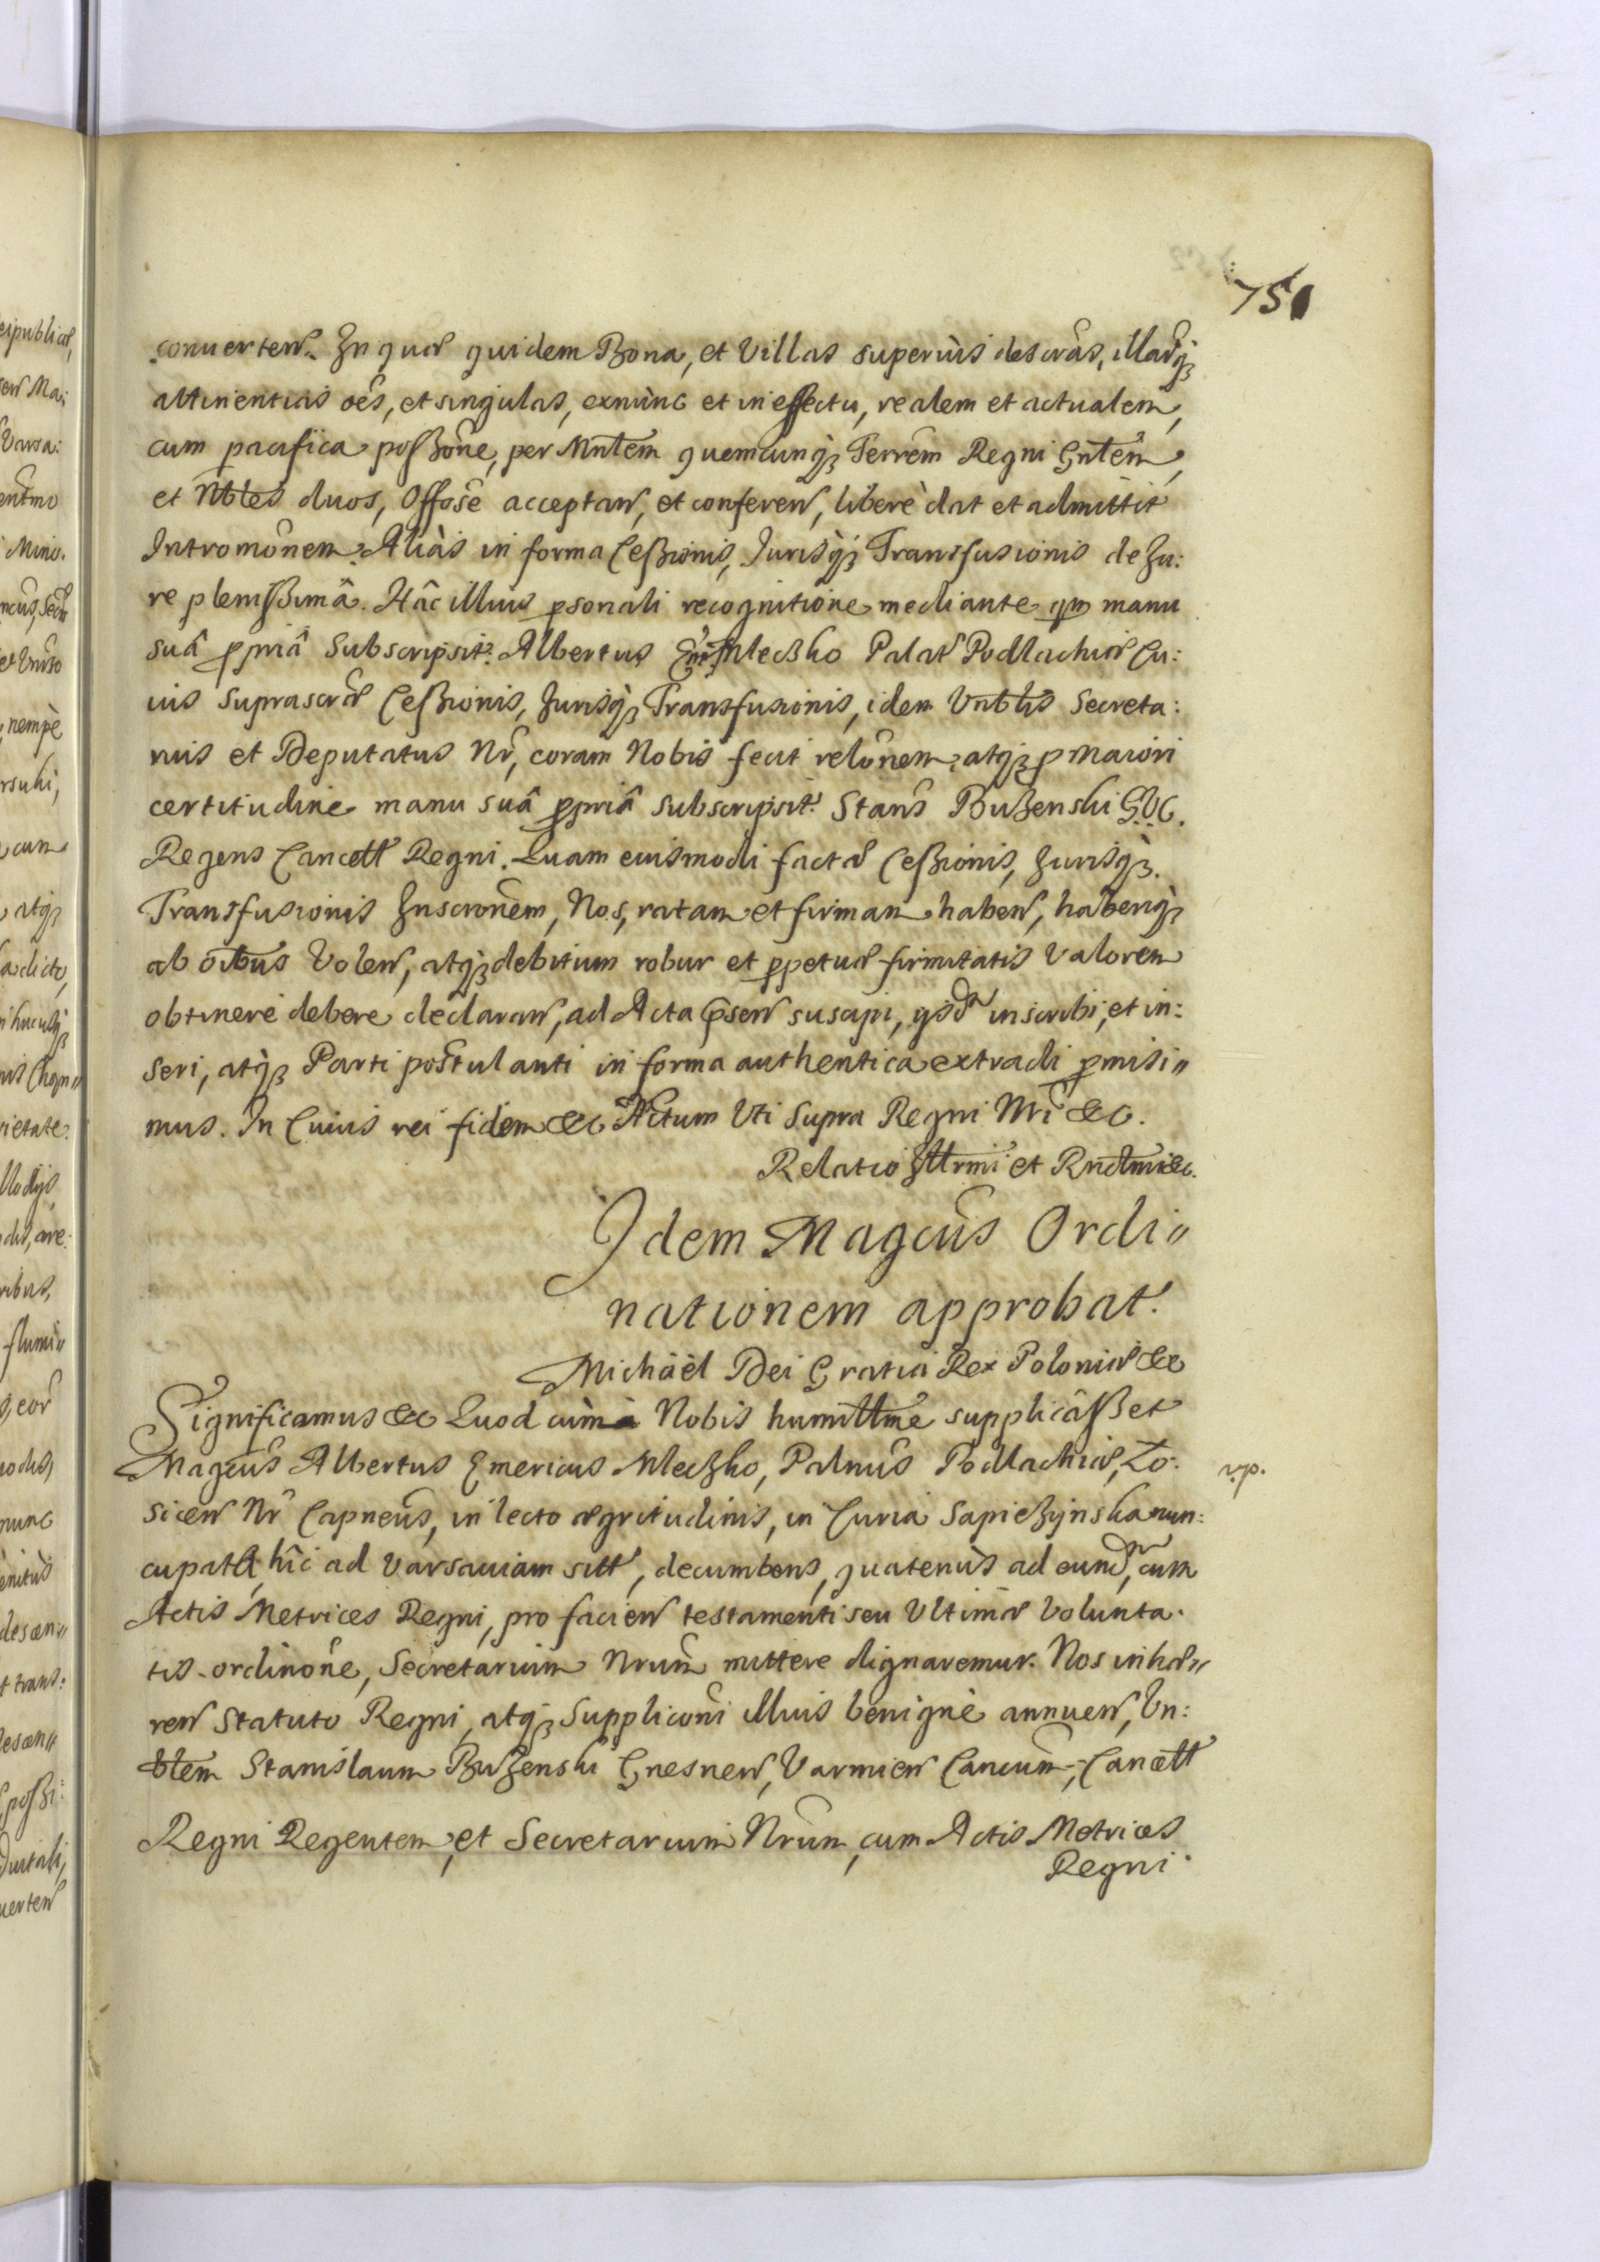 751
conuerteñ. In quæ quidem Bona, et Villas superiùs descrâs, illarq̃ꝫ
attinentias oẽs, et singulas, exnùnc et in effectu, realem et actualem,
cum pacifica possõne, per Mñtem quemcunq̃ꝫ Terrẽm Regni Gñtem,
et Nbles duos, Offose acceptañ, et confereñ, liberè dat et admittit
Intromõnem. Aliàs in forma Cessionis, Jurisq̃ꝫ Transfusionis de Ju:
re plenissimâ. Hâc illius psonali recognitione mediante qm manu
suâ ppriâ Subscripsit. Albertus Mleczko Palat Podlachiæ Cu:
ius Suprascræ Cessionis, Jurisq̃ꝫ Transfusionis, idem Vrblis Secreta:
rius et Deputatus Nr̃, coram Nobis fecit relõnem, atq̃ꝫ p maiori
certitudine manu suâ ppriâ subscripsit. Stans Buzenski G.V.C.
Regens Cancell Regni. Quam eiusmodi factæ Cessionis, Jurisq̃ꝫ
Transfusionis Inscronẽm, Nos, ratam et firmam habeñ, haberiq̃ꝫ
ab oĩbus Voleñ, atq̃ꝫ debitum robur et ppetuæ firmitatis Valorem
obtinere debere declarañ, ad Acta p̃señ suscipi, inscribi, et in:
seri, atq̃ꝫ Parti postulanti in forma authentica extradi pmisi〃
mus. In Cuius rei fidem &c Actum Vti Supra Regni Nri &c.
Relatio Illrmi et Rndmi &c.
Idem Magcus Ordi〃
nationem approbat.
Michäel Dei Gratia Rex Poloniæ &c
Significamus &c Quod cùm à Nobis humillme supplicâsset
Magcus Albertus Emericus Mleczko, Palnus Podlachiæ, Zo: v.p.
siceñ Nr̃ Capneus, in lecto ægritudinis, in Curia Sapiezynska nun:
cupata, hîc ad Varsauiam sitt, decumbens, quatenùs ad eund, cum
Actis Metrices Regni, pro facieñ testamenti seu Vltimæ Volunta.
tis ordinõne, Secretarium Nrum mittere dignaremur. Nos inhæ〃
reñ Statuto Regni, atq̃ꝫ Suppliconi illius benignè annueñ, Vn:
blem Stanislaum Buzenski Gnesneñ, Varmieñ Cancum, Cancell
Regni Regentem, et Secretarium Nrum, cum Actis Metrices
Regni